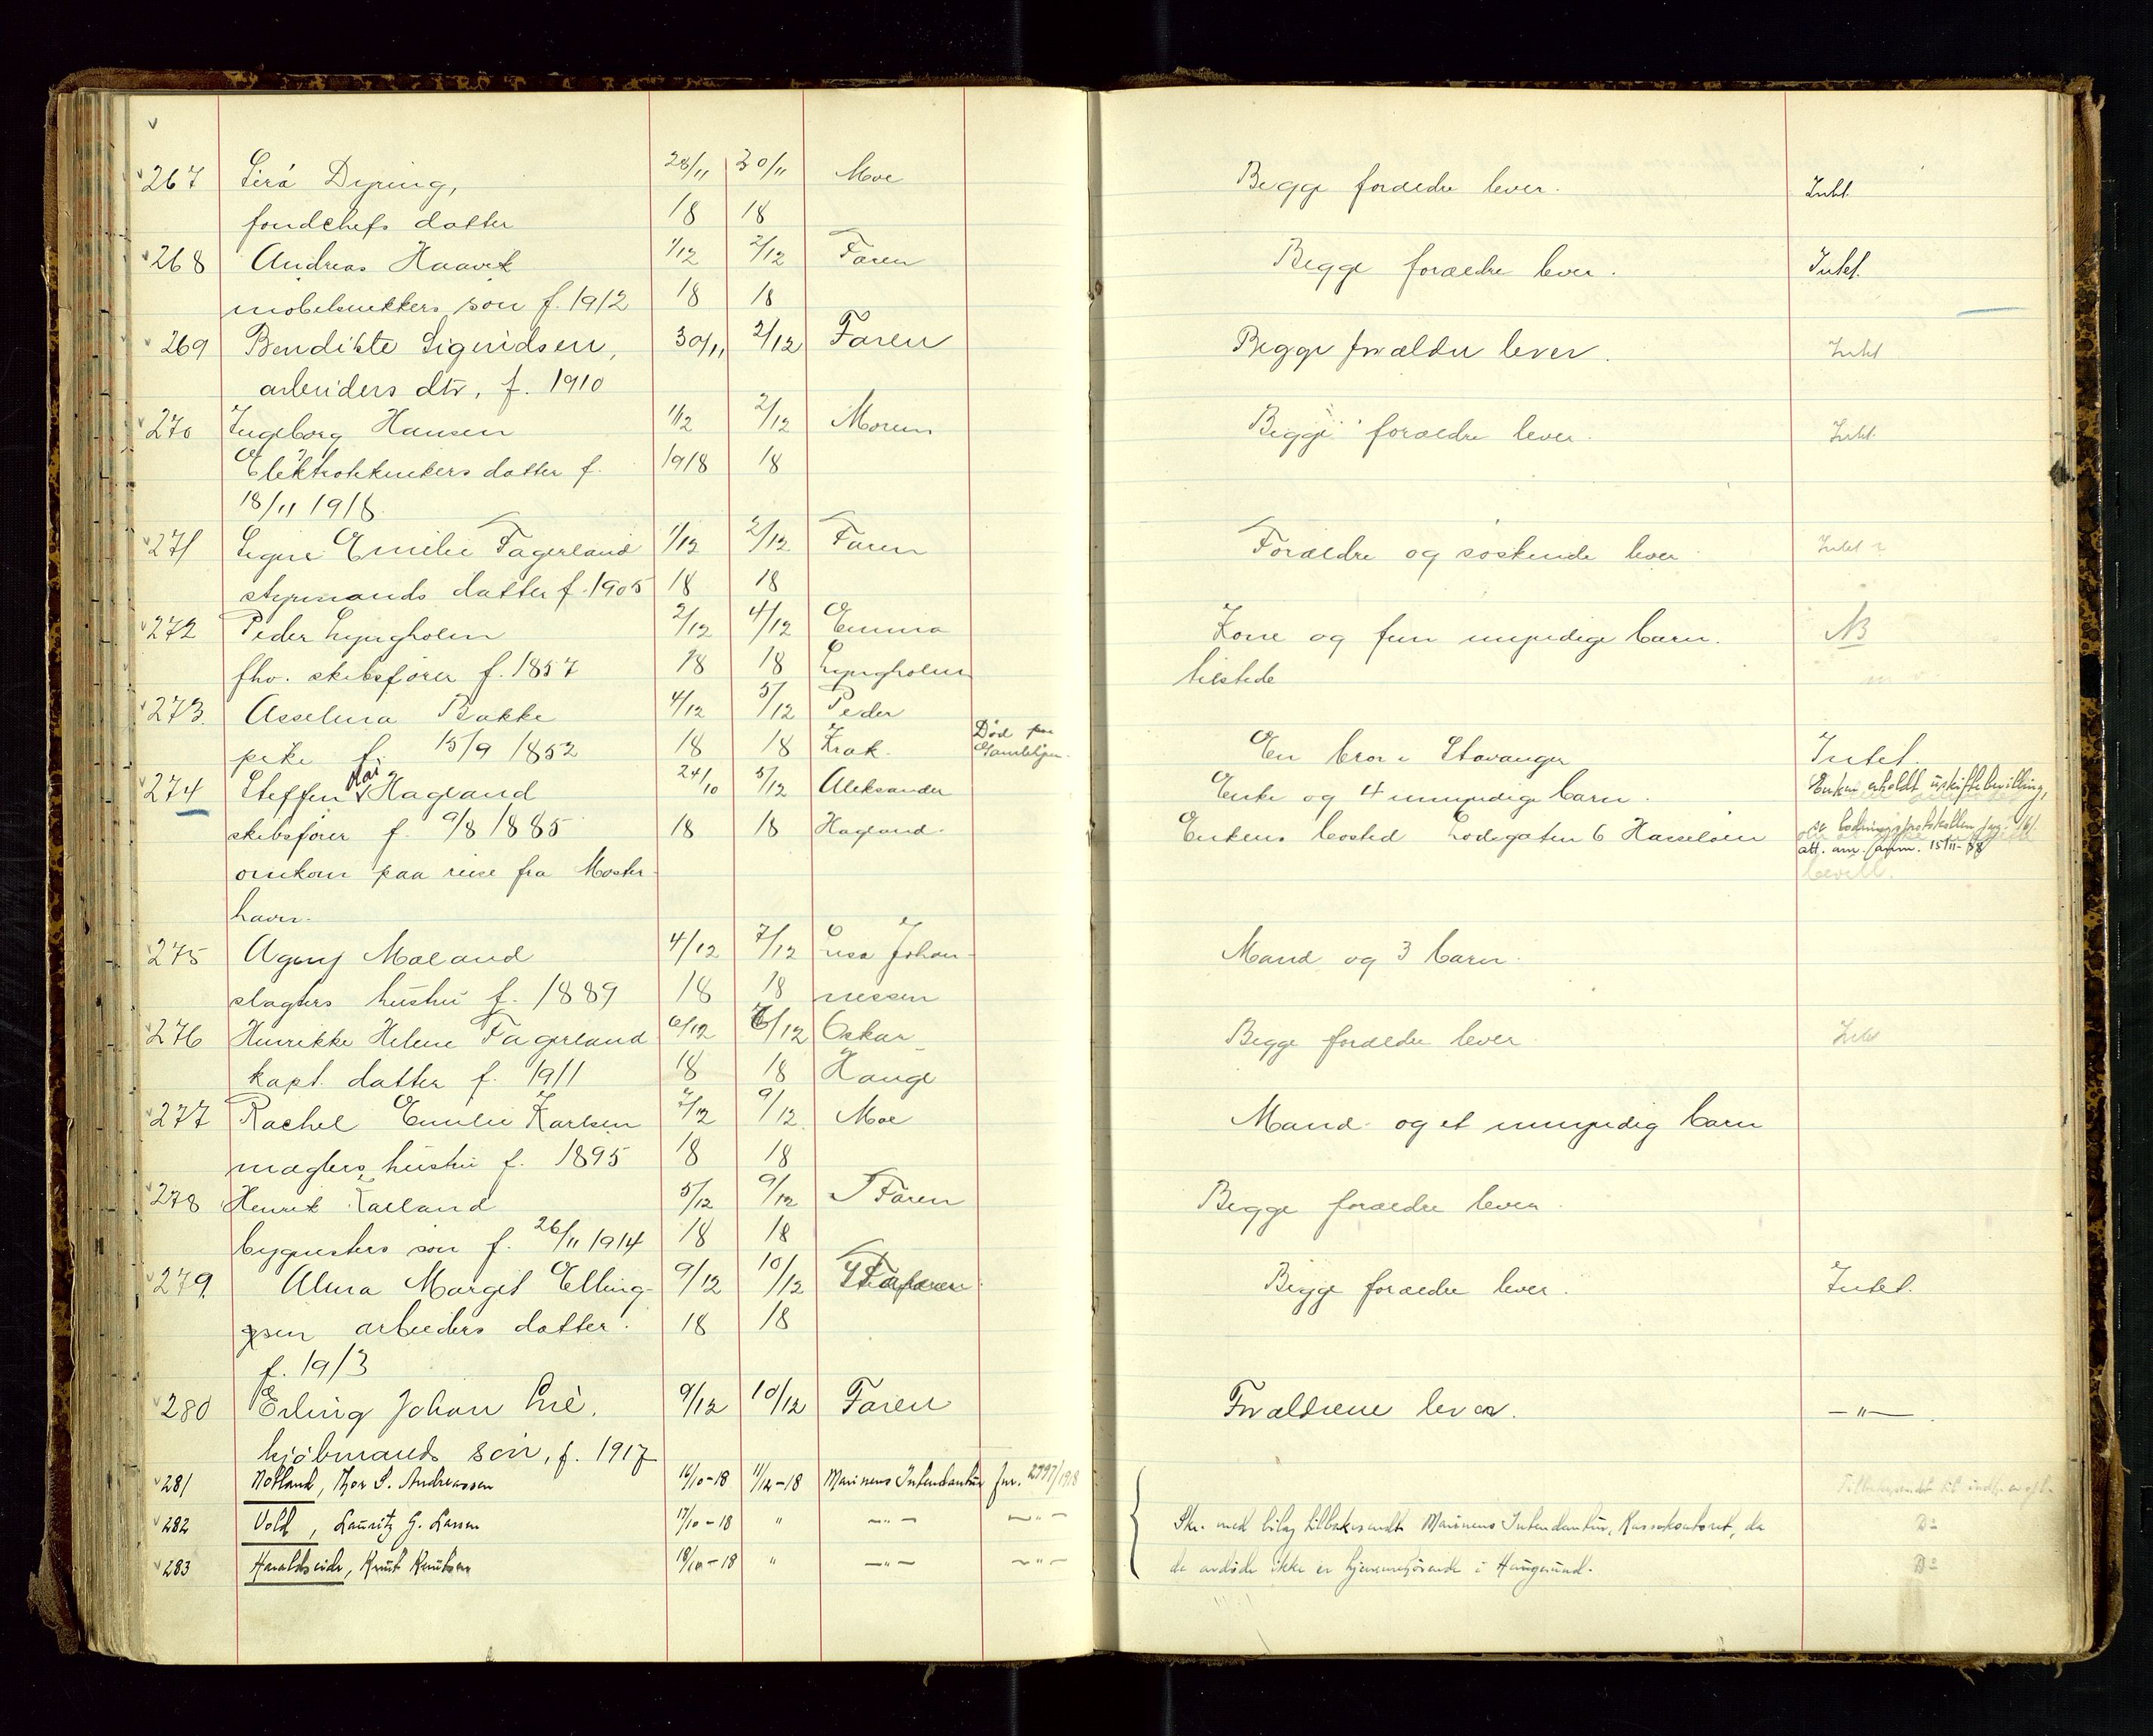 267 Sirá Dyring, 28/11 30/11 Moe Begge forældre lever. Intet.
fondchefs datter 18 18
268 Andreas Haavik 1/12 2/12 Faren Begge forældre lever. Intet.
møbelsnekkers søn f. 1912 18 18
269 Bendikte Sigvridsen, 30/11 2/12 Faren Begge forældre lever. Intet
arbeiders dtr, f. 1910
270 Ingeborg Hansen 1/12 2/12 Moren Begge forældre lever. Intet.
Elektroteknikers datter f. 1918 18
18/11 1918.
271 Signe Emilie Fagerland 1/12 2/12 Faren Forældre og søskende lever Intet
styrmands datter f. 1905 18 18
272 Peder Lyngholm 2/12 4/12 Emma Kone og fem umyndige barn. NB
fhv. skibsfører f. 1857 18 18 Lyngholm tilstede
273. Asselina Bakke 4/12 5/12 Peder
pike f. 15/9 1852 18 18 Krak. Død paa Gamlehjem. En bror i Stavanger Intet.
274 Steffen Mai Hagland 24/10 5/12 Aleksander Enke og 4 umyndige barn. Enken erholdt uskiftebevilling,
skibsfører f. 9/8 1885 18 18 Hagland. Enkens bosted Lodsgaten 6 Hasseløen se lodningsprotokollen pag. 161.
att. anm. 15/11-38
omkom paa reise fra Moster bevill.
havn.
275 Agny Moland 4/12 7/12 Lisa Johan- Mand og 3 barn.
slagters hustru f. 1889 18 18 nessen
276 Henrikke Helene Fagerland 6/12 6/12 Oskar Begge forældre lever Intet
kapt. datter f. 1911 18 18 Hauge
277 Rachel Emilie Karlsen 7/12 9/12 Moe Mand og et umyndig barn
mæglers hustru f. 1895 18 18
278 Henrik Kalland 5/12 9/12 Faren Begge forældre lever
bygmesters søn f. 26/11 1914 18 18
279. Alma Margit Elling- 9/12 10/12 Begge forældre lever. Intet.
sen arbeiders datter. 18 18
f. 1913
280 Erling Johan Lie. 9/12 10/12 Faren Forældrene lever. —"—
kjøbmands søn, f. 1917
281 Notland, Thor S. Andreassen 16/10-18 11/12-18 Marinens Intendantur Jnr. 2797/1918
282 Vold, Lauritz G. Larsen 17/10-18 " —"— —"— Skr. med bilag tilbakesendt Marinens Intendantur, Kassekontoret, da Do
283 Haraldseide, Knut Knutsen 18/10-18 " —"— —"— de avdøde ikke er hjemmehørende i Haugesund. Do